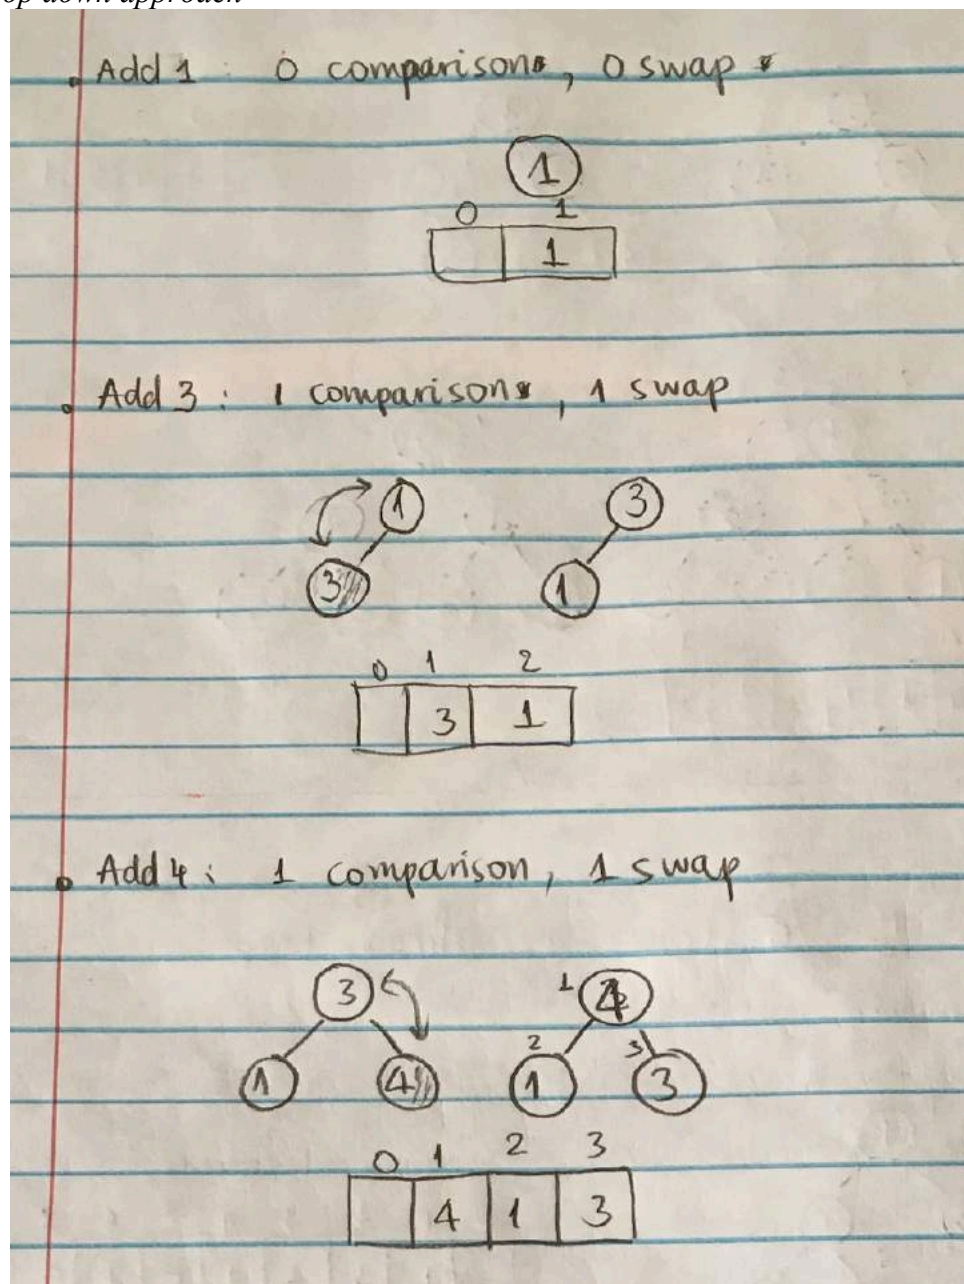 op down approach
• Add 1 : 0 comparisons, 0 swap
1
0 1
1
• Add 3 : 1 comparisons, 1 swap
1 3
3 1
0 1 2
3 1
• Add 4 : 1 comparison, 1 swap
3 1 4
2 3
1 4 1 3
0 1 2 3
4 1 3